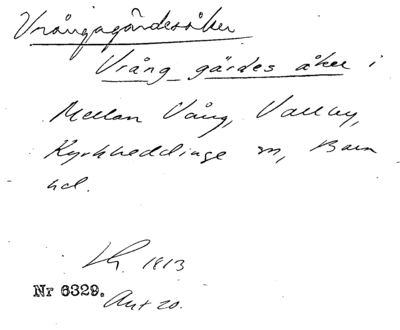 Vrångagärdesåker
Vrång gärdes åker i
Mellan Vång, Vallby,
Kyrkheddinge sn, Bara
hd.
Lh. 1913
Nr 6329. Avt 20.